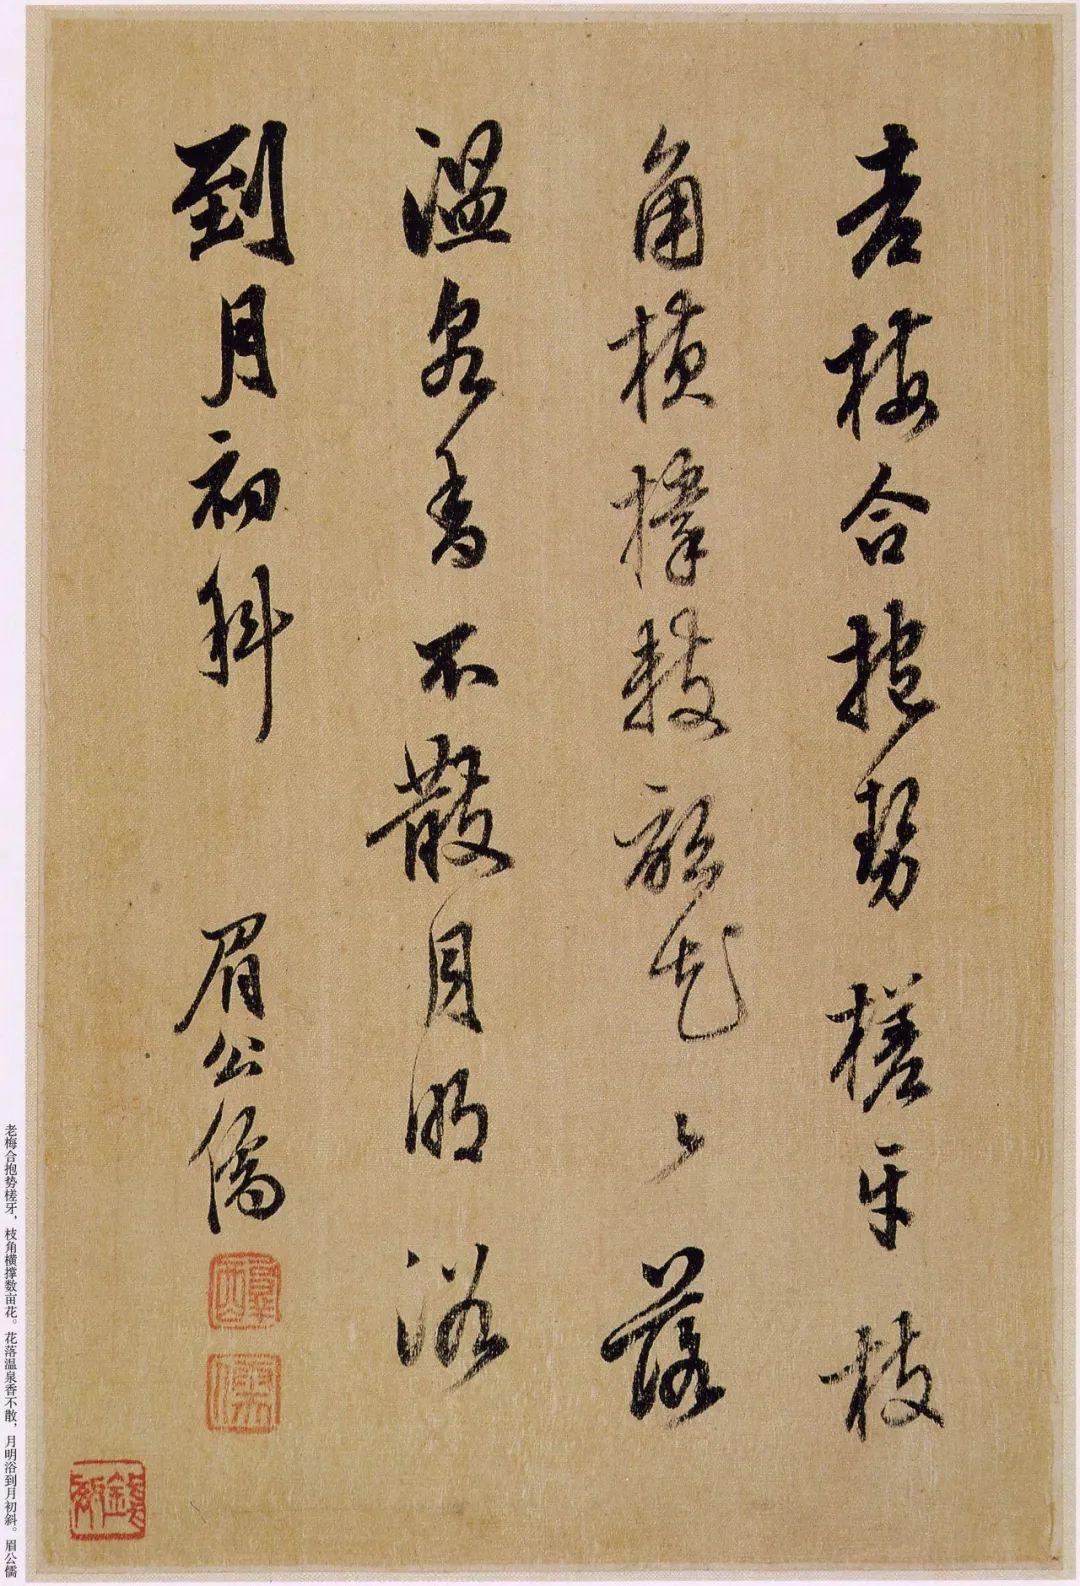 老梅合抱势槎牙枝
角横撑数畝花〻落
温泉香不散月明浴
到月初斜 眉公儒
老梅合抱势槎牙，枝角横撑数亩花。花落温泉香不散，月明浴到月初斜。眉公儒